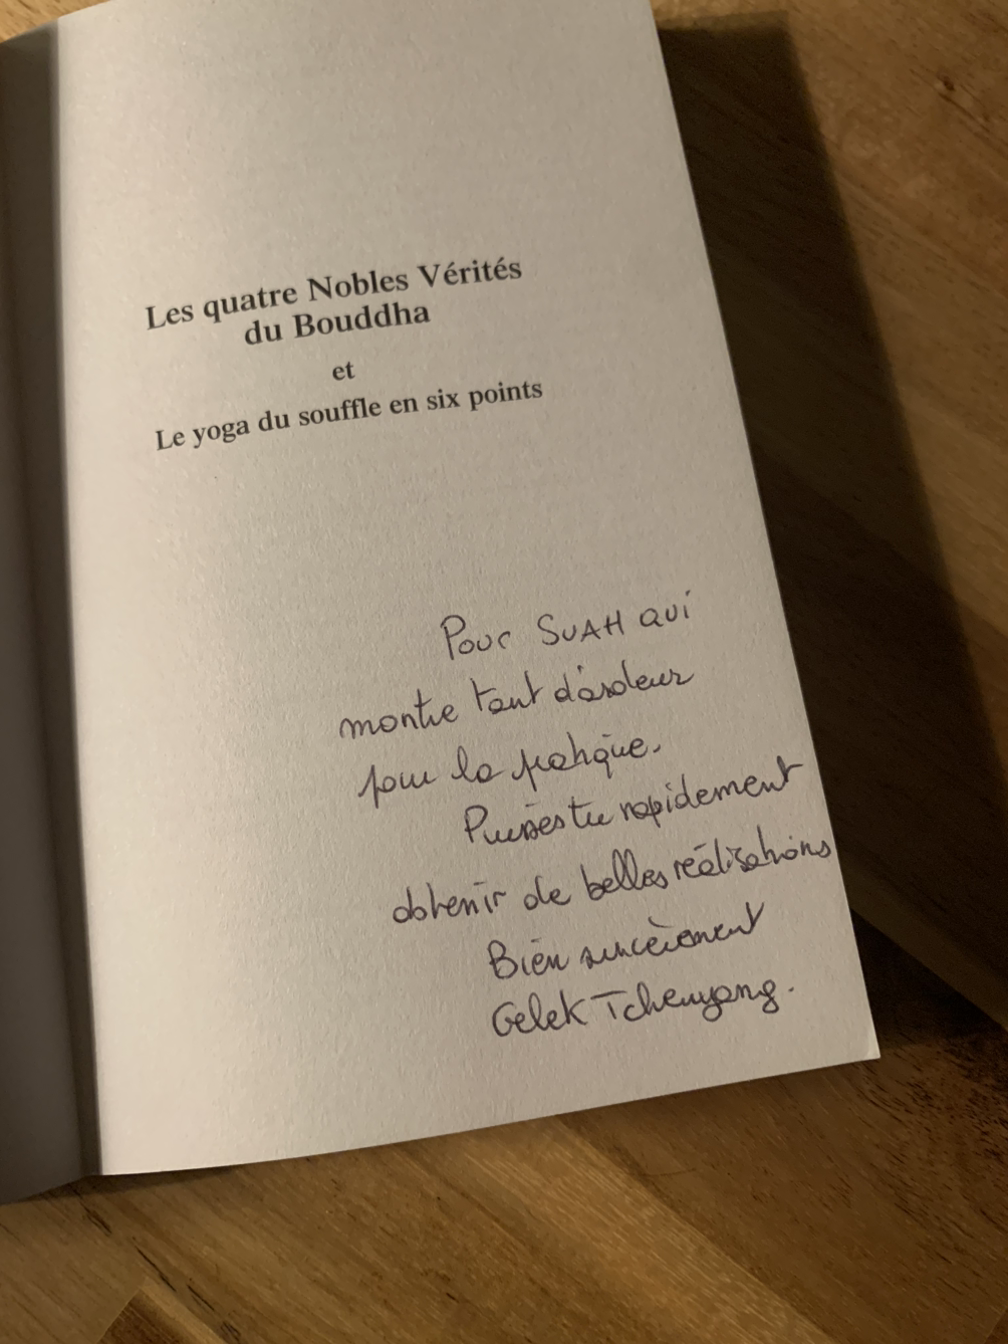 Les quatre Nobles Vérités
du Bouddha
et
Le yoga du souffle en six points
Pour SUAH qui
montre tant d'ardeur
pour la pratique.
Puisses tu rapidement
obtenir de belles réalisations
Bien sincèrement
Gelek Tchenyang.